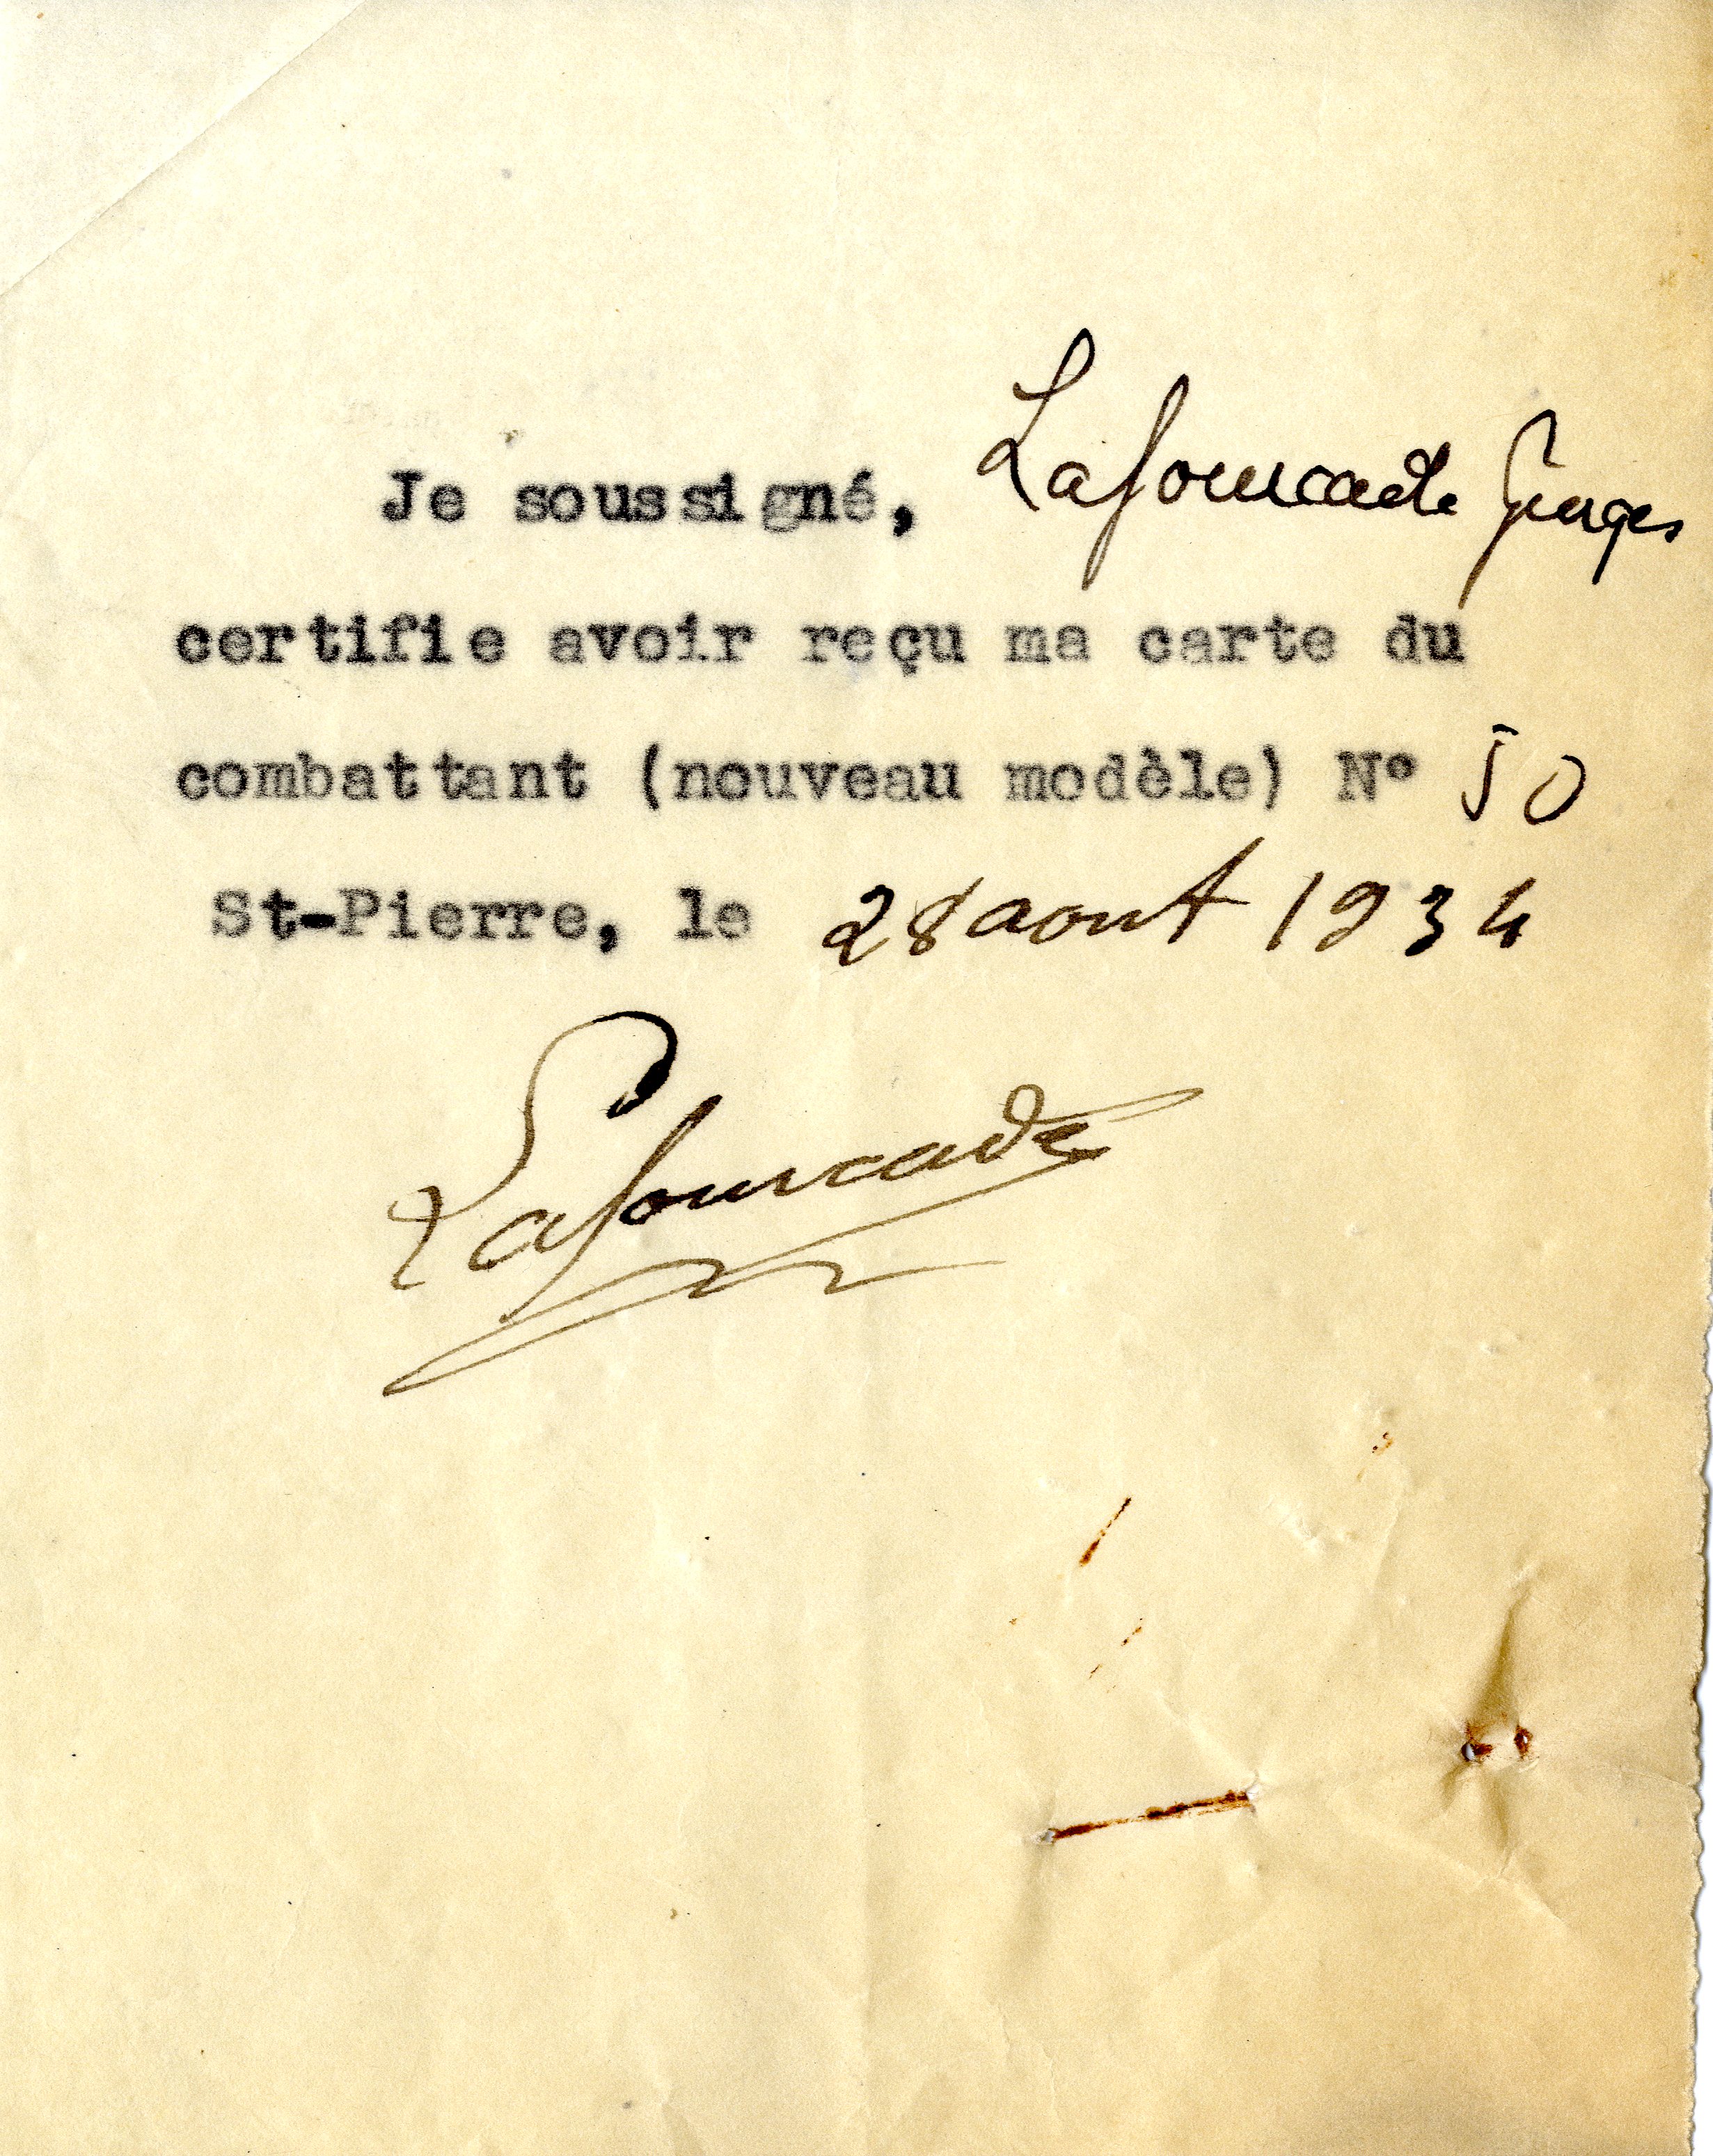 Je soussigné, Lafourcade Georges
certifie avoir reçu ma carte du
combattant (nouveau modèle) N° 50
St-Pierre, le 28 aout 1934
Lafourcade